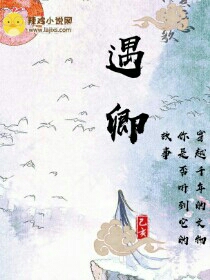 辣鸡小说网
www.lajixs.com
遇卿
穿越千年的文物
你是否听到它的
故事
己亥